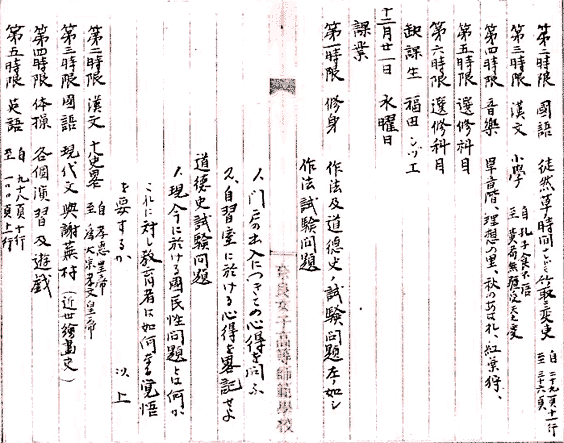 第二時限 國語 徒然草時間なく竹取ニ変更 自二十九頁十一行 至三十六頁
第三時限 漢文 小學 自孔子食不語 至
第四時限 音樂 旱音階、理想の里、秋のあはれ、紅葉狩、
第五時限 選修科目
第六時限 選修科目
缺課生 福田シヅエ
十二月廿一日 水曜日
課業
第一時限 修身 作法及道德史ノ試験問題左ノ如シ
作法試験問題
1、門戸の出入につきての心得を問ふ
2、自習室に於ける心得を畧記せよ
道德史試験問題
1、現今に於ける國民性問題とは何か
これに対し教育者は如何なる覚悟
を要するか 以上
第二時限 漢文 十八史畧 自孝惠皇帝 至
第三時限 國語 現代文 與謝蕪村(近世繪畫史)
第四時限 体操 各個演習及遊戯
第五時限 英語 自九十八頁十行 至一〇〇頁上行
奈良女子高等師範學校